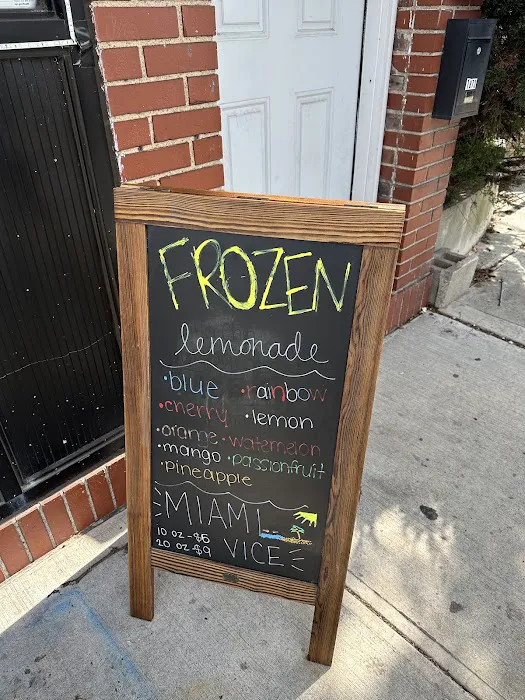 FROZEN
lemonade
•blue •rainbow
•cherry •lemon
•orange •watermelon
•mango •passionfruit
•pineapple
MIAMI
VICE
10 oz - $6
20 oz - $9